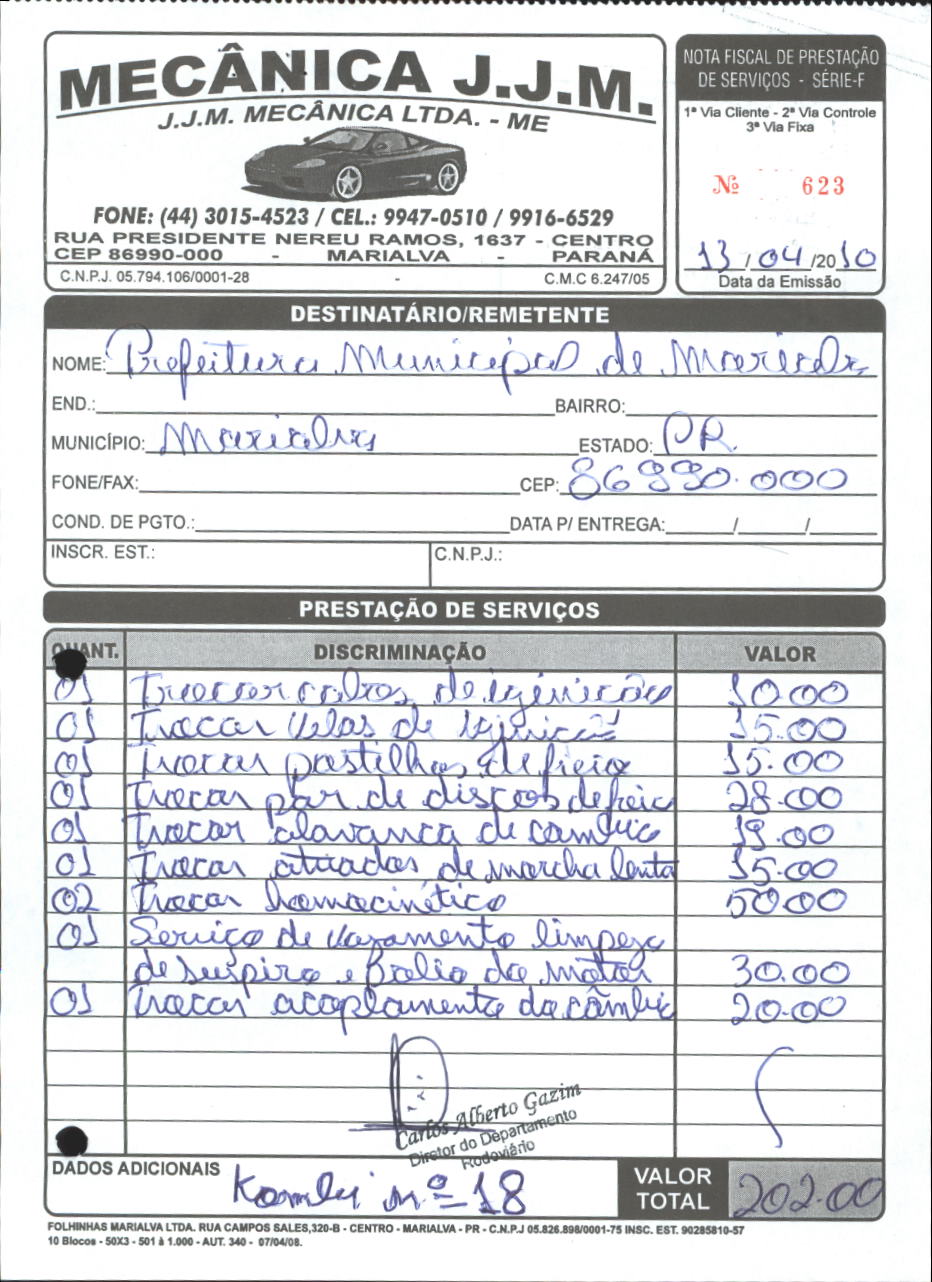 MECÂNICA J.J.M.
J.J.M. MECÂNICA LTDA. - ME
FONE: (44) 3015-4523 / CEL.: 9947-0510 / 9916-6529
RUA PRESIDENTE NEREU RAMOS, 1637 - CENTRO
CEP 86990-000 - MARIALVA - PARANÁ
C.N.P.J. 05.794.106/0001-28 - C.M.C 6.247/05
NOTA FISCAL DE PRESTAÇÃO
DE SERVIÇOS - SÉRIE-F
1ª Via Cliente - 2ª Via Controle
3ª Via Fixa
Nº 623
13/04/2010
Data da Emissão
DESTINATÁRIO/REMETENTE
NOME: Prefeitura Municipal de Marialva
END.: BAIRRO:
MUNICÍPIO: Marialva ESTADO: PR.
FONE/FAX: CEP: 86990.000
COND. DE PGTO.: DATA P/ ENTREGA: / /
INSCR. EST.: C.N.P.J.:
PRESTAÇÃO DE SERVIÇOS
QUANT. DISCRIMINAÇÃO VALOR
01 Trocar cabos de ignicão 10.00
01 Trocar Velas de ignicão 15.00
01 Trocar pastilhas de freio 15.00
01 Trocar par de discos de freio 28.00
01 Trocar alavanca de cambio 19.00
01 Trocar atuador de marcha lenta 15.00
02 Trocar homocinético 50.00
01 Serviço de vazamento limpeza
de suspiro e Bolio do motor 30.00
01 Trocar acoplamento do câmbio 20.00
Carlos Alberto Gazim
Diretor do Departamento
Rodoviário
DADOS ADICIONAIS Kombi nº 18
VALOR TOTAL 202.00
FOLHINHAS MARIALVA LTDA. RUA CAMPOS SALES,320-B - CENTRO - MARIALVA - PR - C.N.P.J 05.826.898/0001-75 INSC. EST. 90285810-57
10 Blocos - 50X3 - 501 à 1.000 - AUT. 340 - 07/04/08.